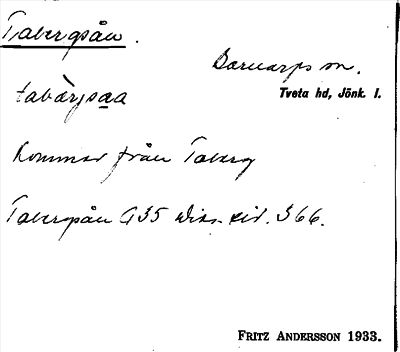 Tabergsån.
Barnarps sn.
tabàrjsaa
Tveta hd, Jönk. l.
Kommer från Taberg
Tabergsån G35 Disr. tid. 366.
FRITZ ANDERSSON 1933.